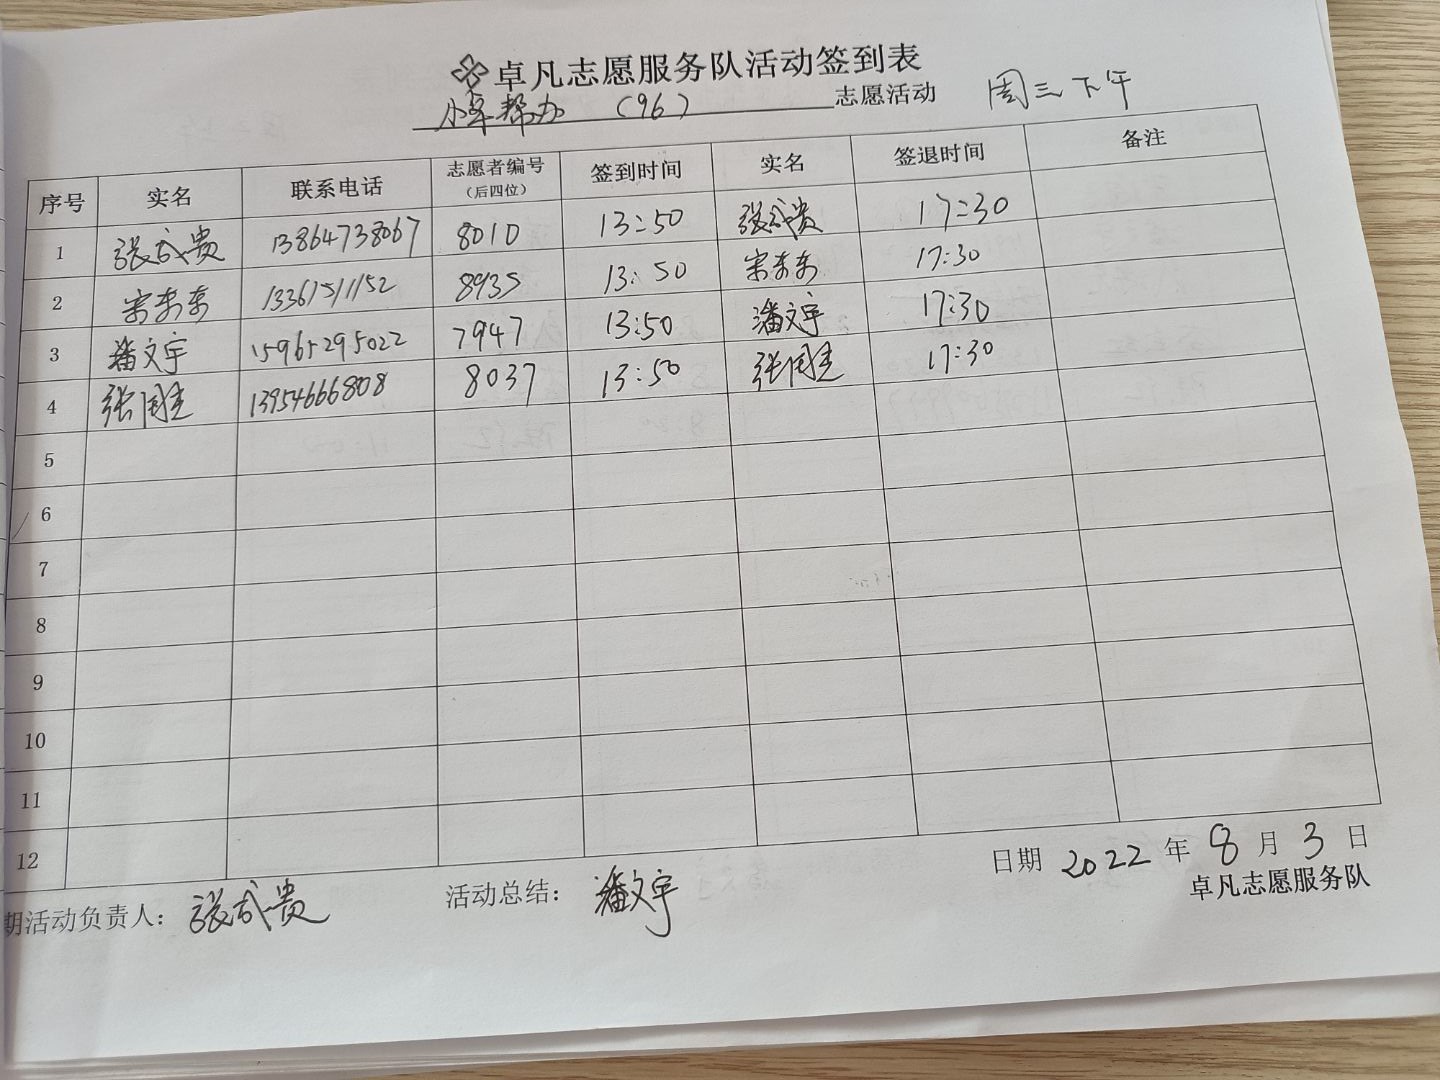 卓凡志愿服务队活动签到表
小卓帮办 (96) 志愿活动 周三下午
序号 实名 联系电话 志愿者编号(后四位) 签到时间 实名 签退时间 备注
1 张成贵 13864738067 8010 13:50 张成贵 17:30
2 宋东东 13361511152 8935 13:50 宋东东 17:30
3 潘文宇 15965295022 7947 13:50 潘文宇 17:30
4 张国圭 13954666808 8037 13:50 张国圭 17:30
5
6
7
8
9
10
11
12
期活动负责人: 张成贵 活动总结: 潘文宇 日期 2022 年 8 月 3 日
卓凡志愿服务队